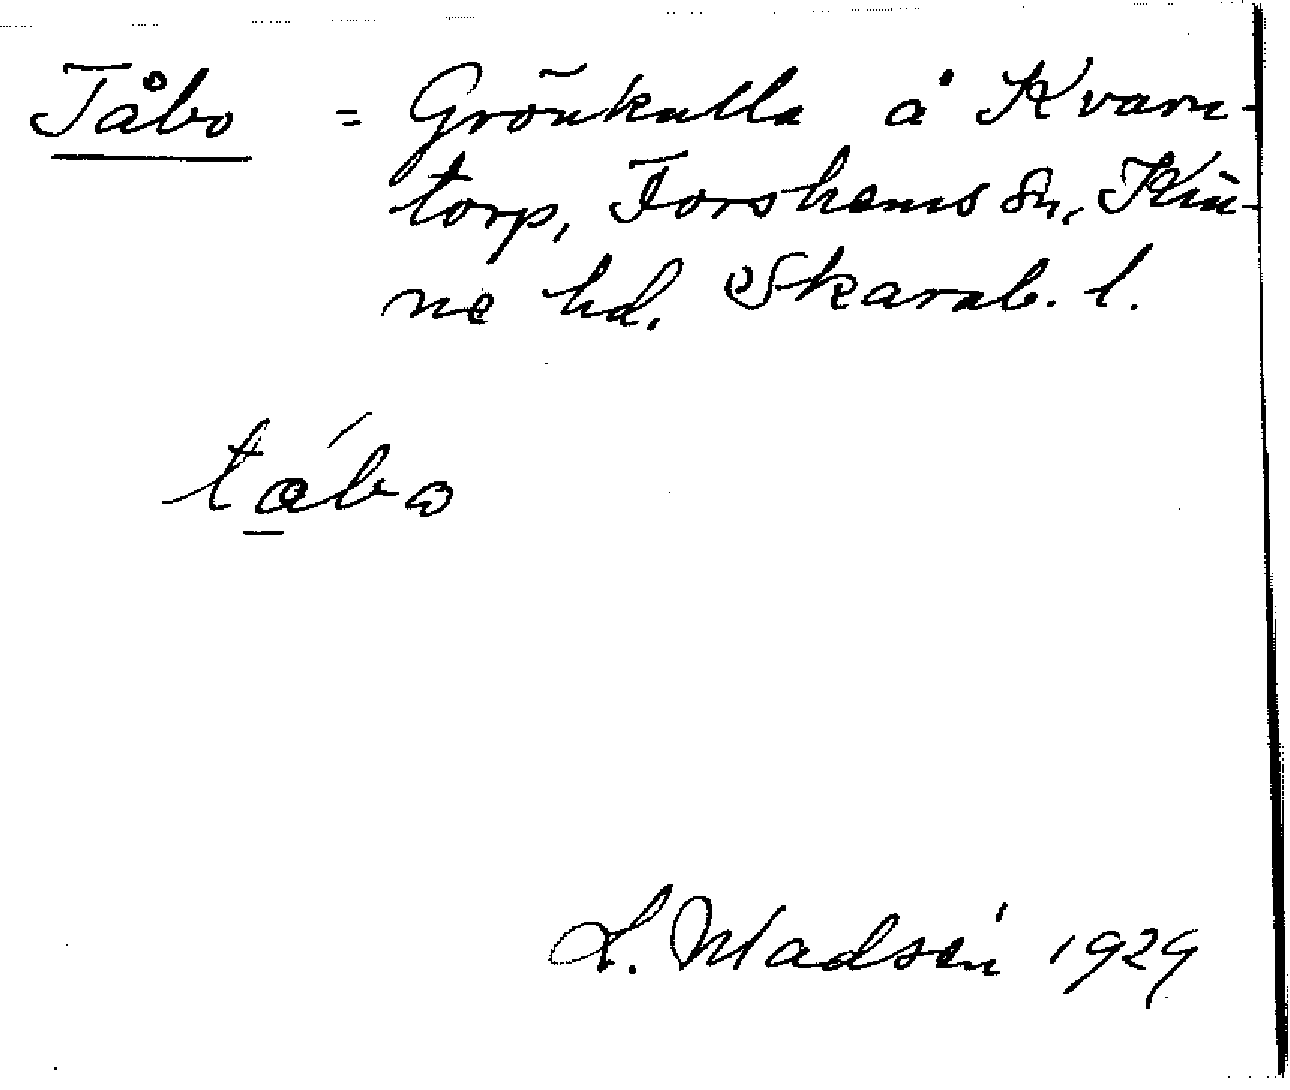 Tåbo = Grönkulla å Kvarn-
torp, Forshems sn, Kin-
ne hd. Skarab. l.
tábo
L. Madsén 1929